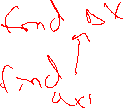 find Δx
find
ax